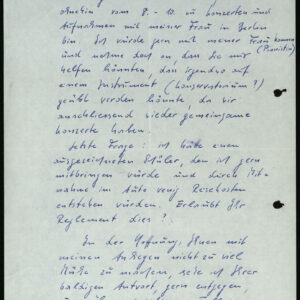 ohnehin vom 8. - 10. zu Konzerten und
Aufnahmen mit meiner Frau in Berlin
bin. Ich würde gern mit meiner Frau kommen
(Pianistin)
und nehme doch an, dass Sie mir
helfen könnten, dass irgendwo auf
einem Instrument (Konservatorium?)
geübt werden könnte, da wir
anschliessend wieder gemeinsame
Konzerte haben.
Letzte Frage: ich hätte einen
ausgezeichneten Schüler, den ich gern
mitbringen würde und durch Mit-
nahme im Auto wenig Reisekosten
entstehen würden. Erlaubt Ihr
Reglement dies?
In der Hoffnung, Ihnen mit
meinen Anliegen nicht zu viel
Mühe zu machen, sehe ich Ihrer
baldigen Antwort gern entgegen,